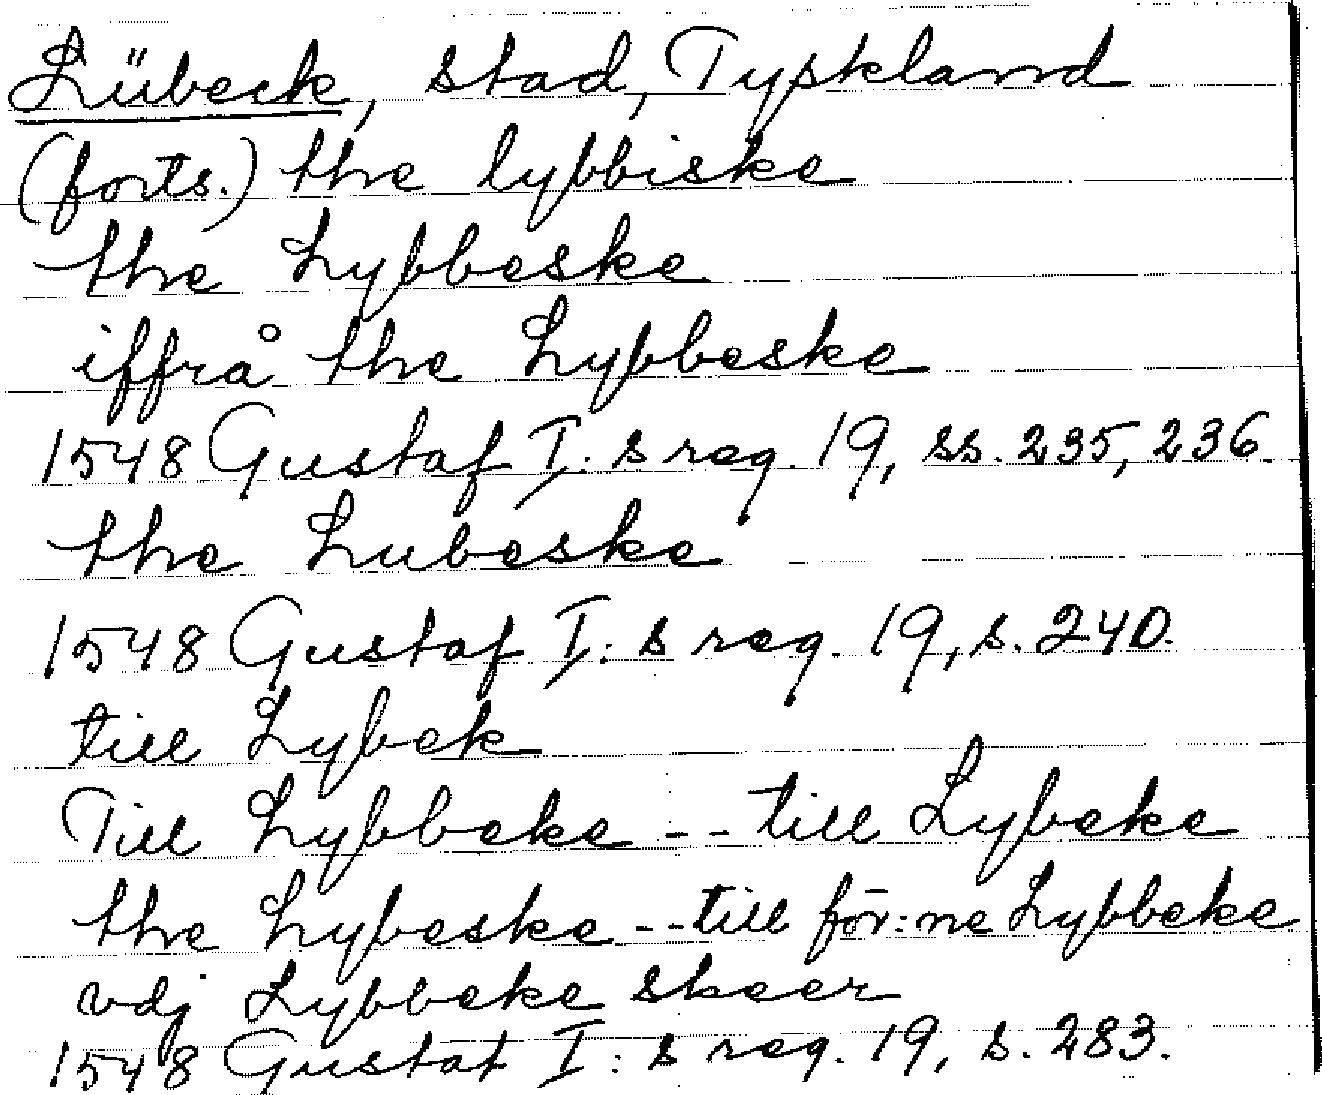 Lübeck, stad, Tyskland
(forts.) the lybbiske
the Lybbeske
iffrå the Lybbeske
1548 Gustaf I: s reg. 19, ss. 235, 236.
the Lubeske
1548 Gustaf I: s reg. 19, s. 240.
till Lybek
Till Lybbeke -- till Lybeke
the Lybeske -- till för:ne Lybbeke
vdj Lybbeke skeer
1548 Gustaf I: s reg. 19, s. 283.